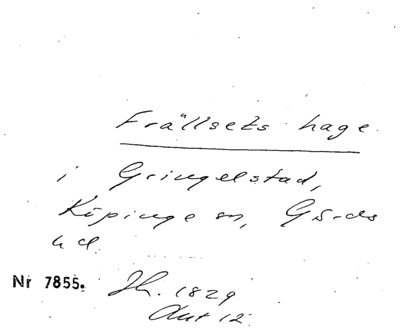 Frällsets hage
i Gringelstad,
Köpinge sn, Gärds
hd.
Nr 7855. Jh. 1829
Aut 12.